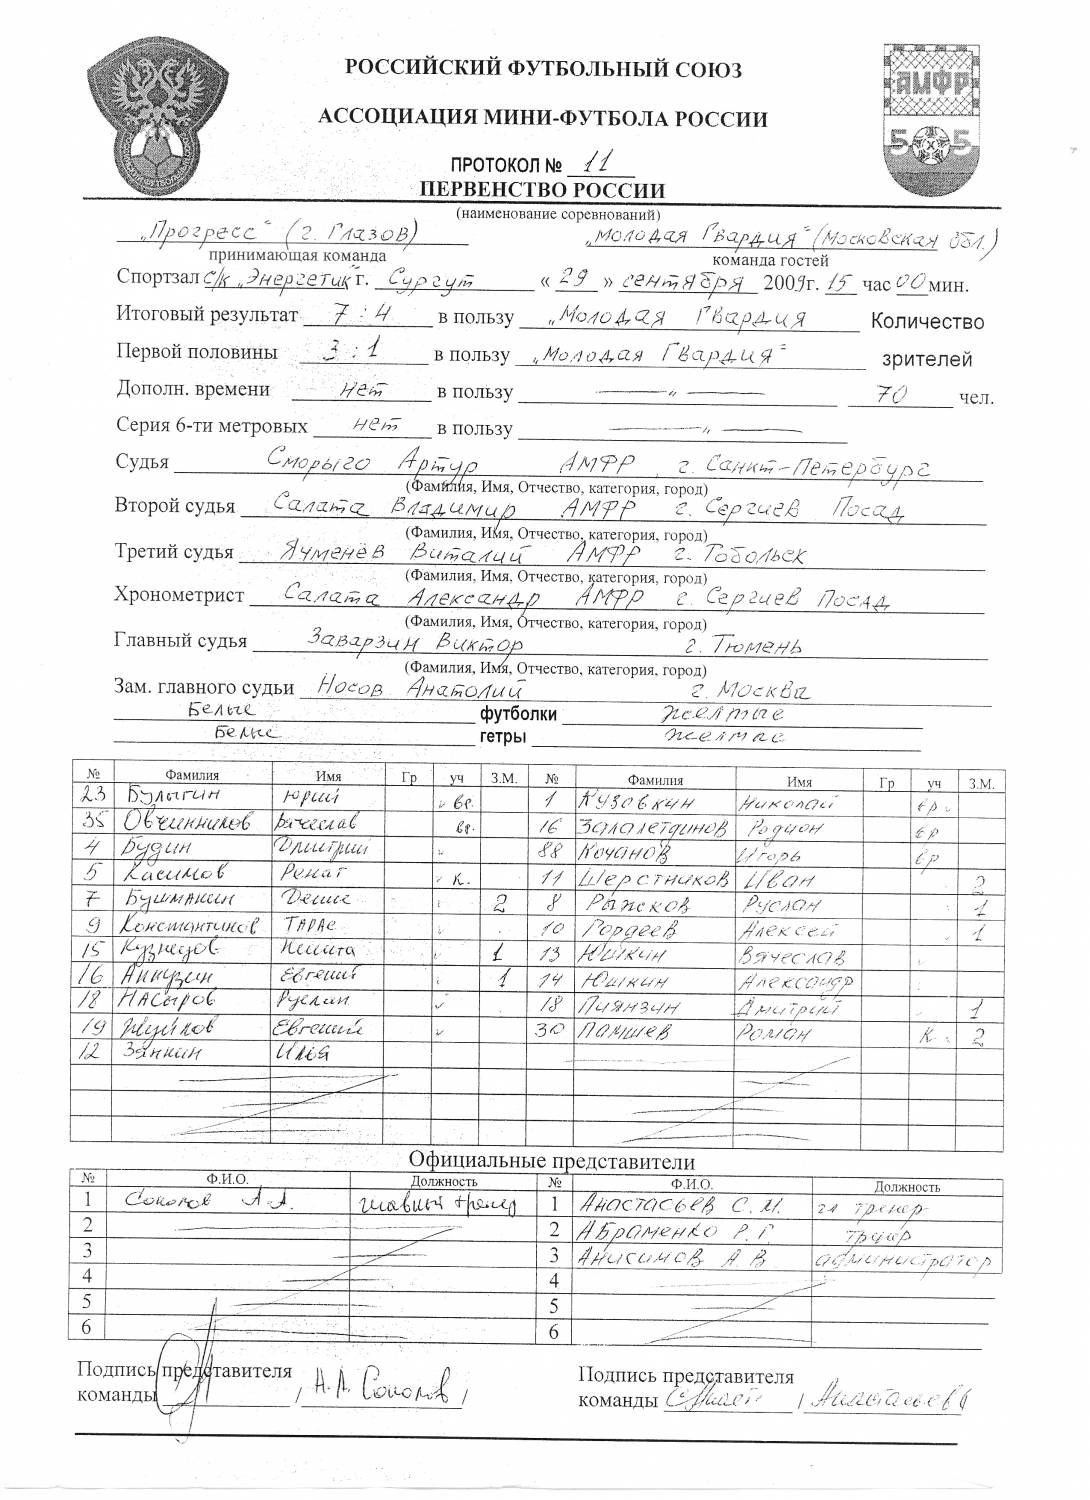 РОССИЙСКИЙ ФУТБОЛЬНЫЙ СОЮЗ
АССОЦИАЦИЯ МИНИ-ФУТБОЛА РОССИИ
АМФР
5 5
ПРОТОКОЛ № 11
ПЕРВЕНСТВО РОССИИ
(наименование соревнований)
„Прогресс“ (г. Глазов) „Молодая Гвардия“ (Московская обл.)
принимающая команда команда гостей
Спортзал с/к „Энергетик“ г. Сургут « 29 » сентября 2009г. 15 час 00 мин.
Итоговый результат 7 : 4 в пользу „Молодая Гвардия Количество
Первой половины 3 : 1 в пользу „Молодая Гвардия“ зрителей
Дополн. времени нет в пользу — „ — 70 чел.
Серия 6-ти метровых нет в пользу — „ —
Судья Сморыго Артур АМФР г. Санкт-Петербург
(Фамилия, Имя, Отчество, категория, город)
Второй судья Салата Владимир АМФР г. Сергиев Посад
(Фамилия, Имя, Отчество, категория, город)
Третий судья Ячменёв Виталий АМФР г. Тобольск
(Фамилия, Имя, Отчество, категория, город)
Хронометрист Салата Александр АМФР г. Сергиев Посад
(Фамилия, Имя, Отчество, категория, город)
Главный судья Заварзин Виктор г. Тюмень
(Фамилия, Имя, Отчество, категория, город)
Зам. главного судьи Носов Анатолий г. Москва
Белые футболки желтые
Белые гетры желтые
№ Фамилия Имя Гр уч З.М. № Фамилия Имя Гр уч З.М.
23 Булыгин Юрий вр. 1 Кузовкин Николай вр.
35 Овчинников Вячеслав вр. 16 Залалетдинов Родион вр
4 Будин Дмитрий 88 Кочанов Игорь вр
5 Касимов Ренат к. 11 Шерстников Иван 2
7 Бушмакин Денис 2 8 Рыжков Руслан 1
9 Константинов Тарас 10 Гордеев Алексей 1
15 Кузнецов Никита 1 13 Юшкин Вячеслав
16 Евгений 1 14 Юшкин Александр
18 Насыров Руслан 18 Пиянзин Дмитрий 1
19 Жуйков Евгений 30 Роман К. 2
12 Занкин Илья
Официальные представители
№ Ф.И.О. Должность № Ф.И.О. Должность
1 Соколов А.А. главный тренер 1 Анастасьев С.М. гл тренер
2 2 Абраменко Р.Г. тренер
3 3 Анисимов А.В администратор
4 4
5 5
6 6
Подпись представителя Подпись представителя
команды / А.А. Соколов / команды / Анастасьев /